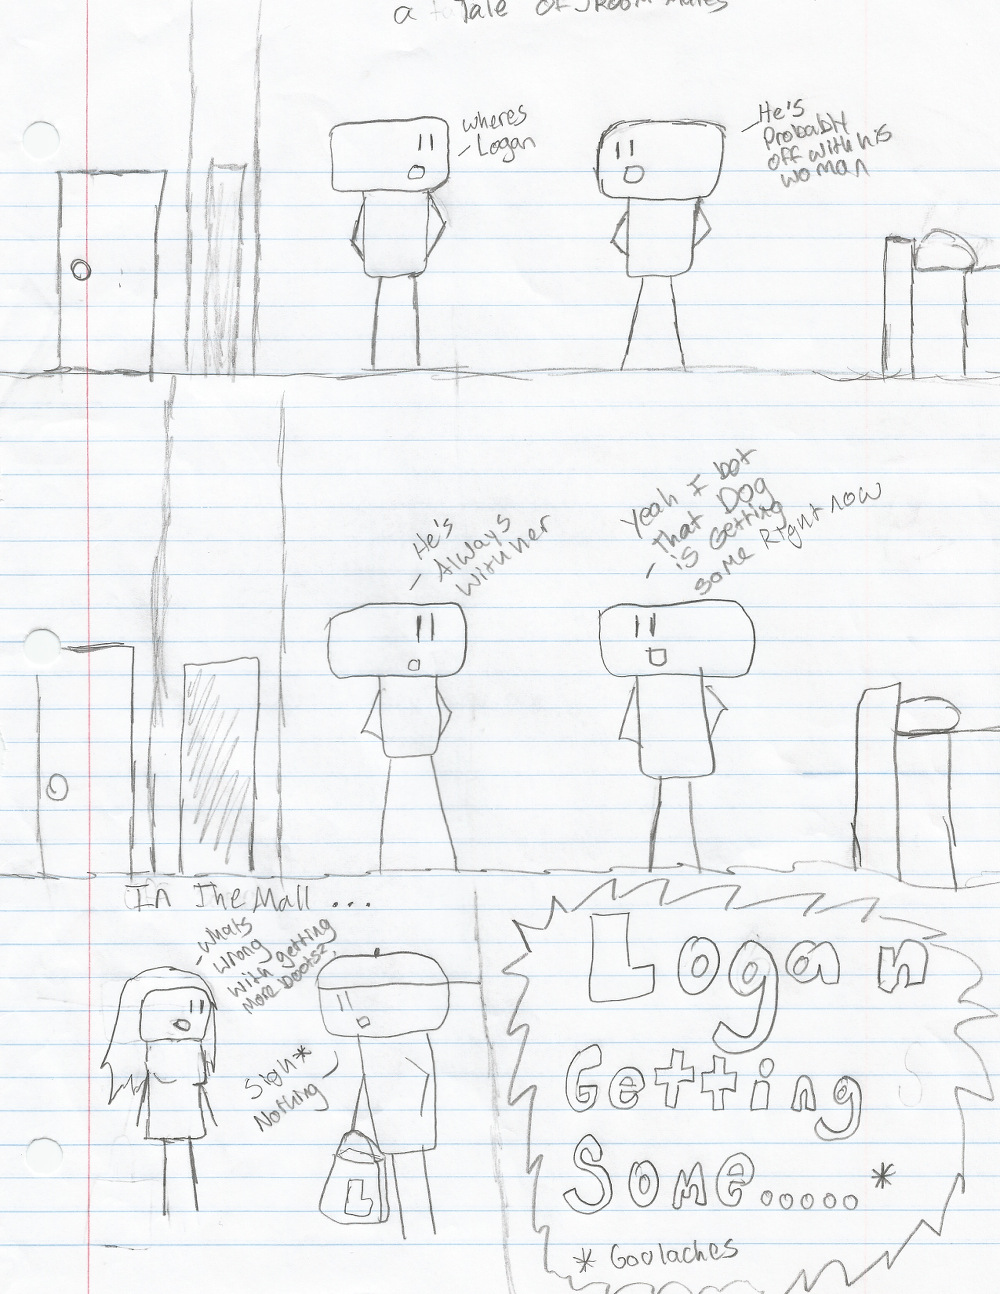 a Tale OF 3 Room Mates
wheres
- Logan
- He's
Probably
off with his
woman
He's
- Always
with her
Yeah I bet
That Dog
- is Getting
some Right now
In The Mall ...
- Whats
wrong
with getting
More boots?
Sigh*
Nothing
L
Logan
Getting
Some.....*
* Goulaches